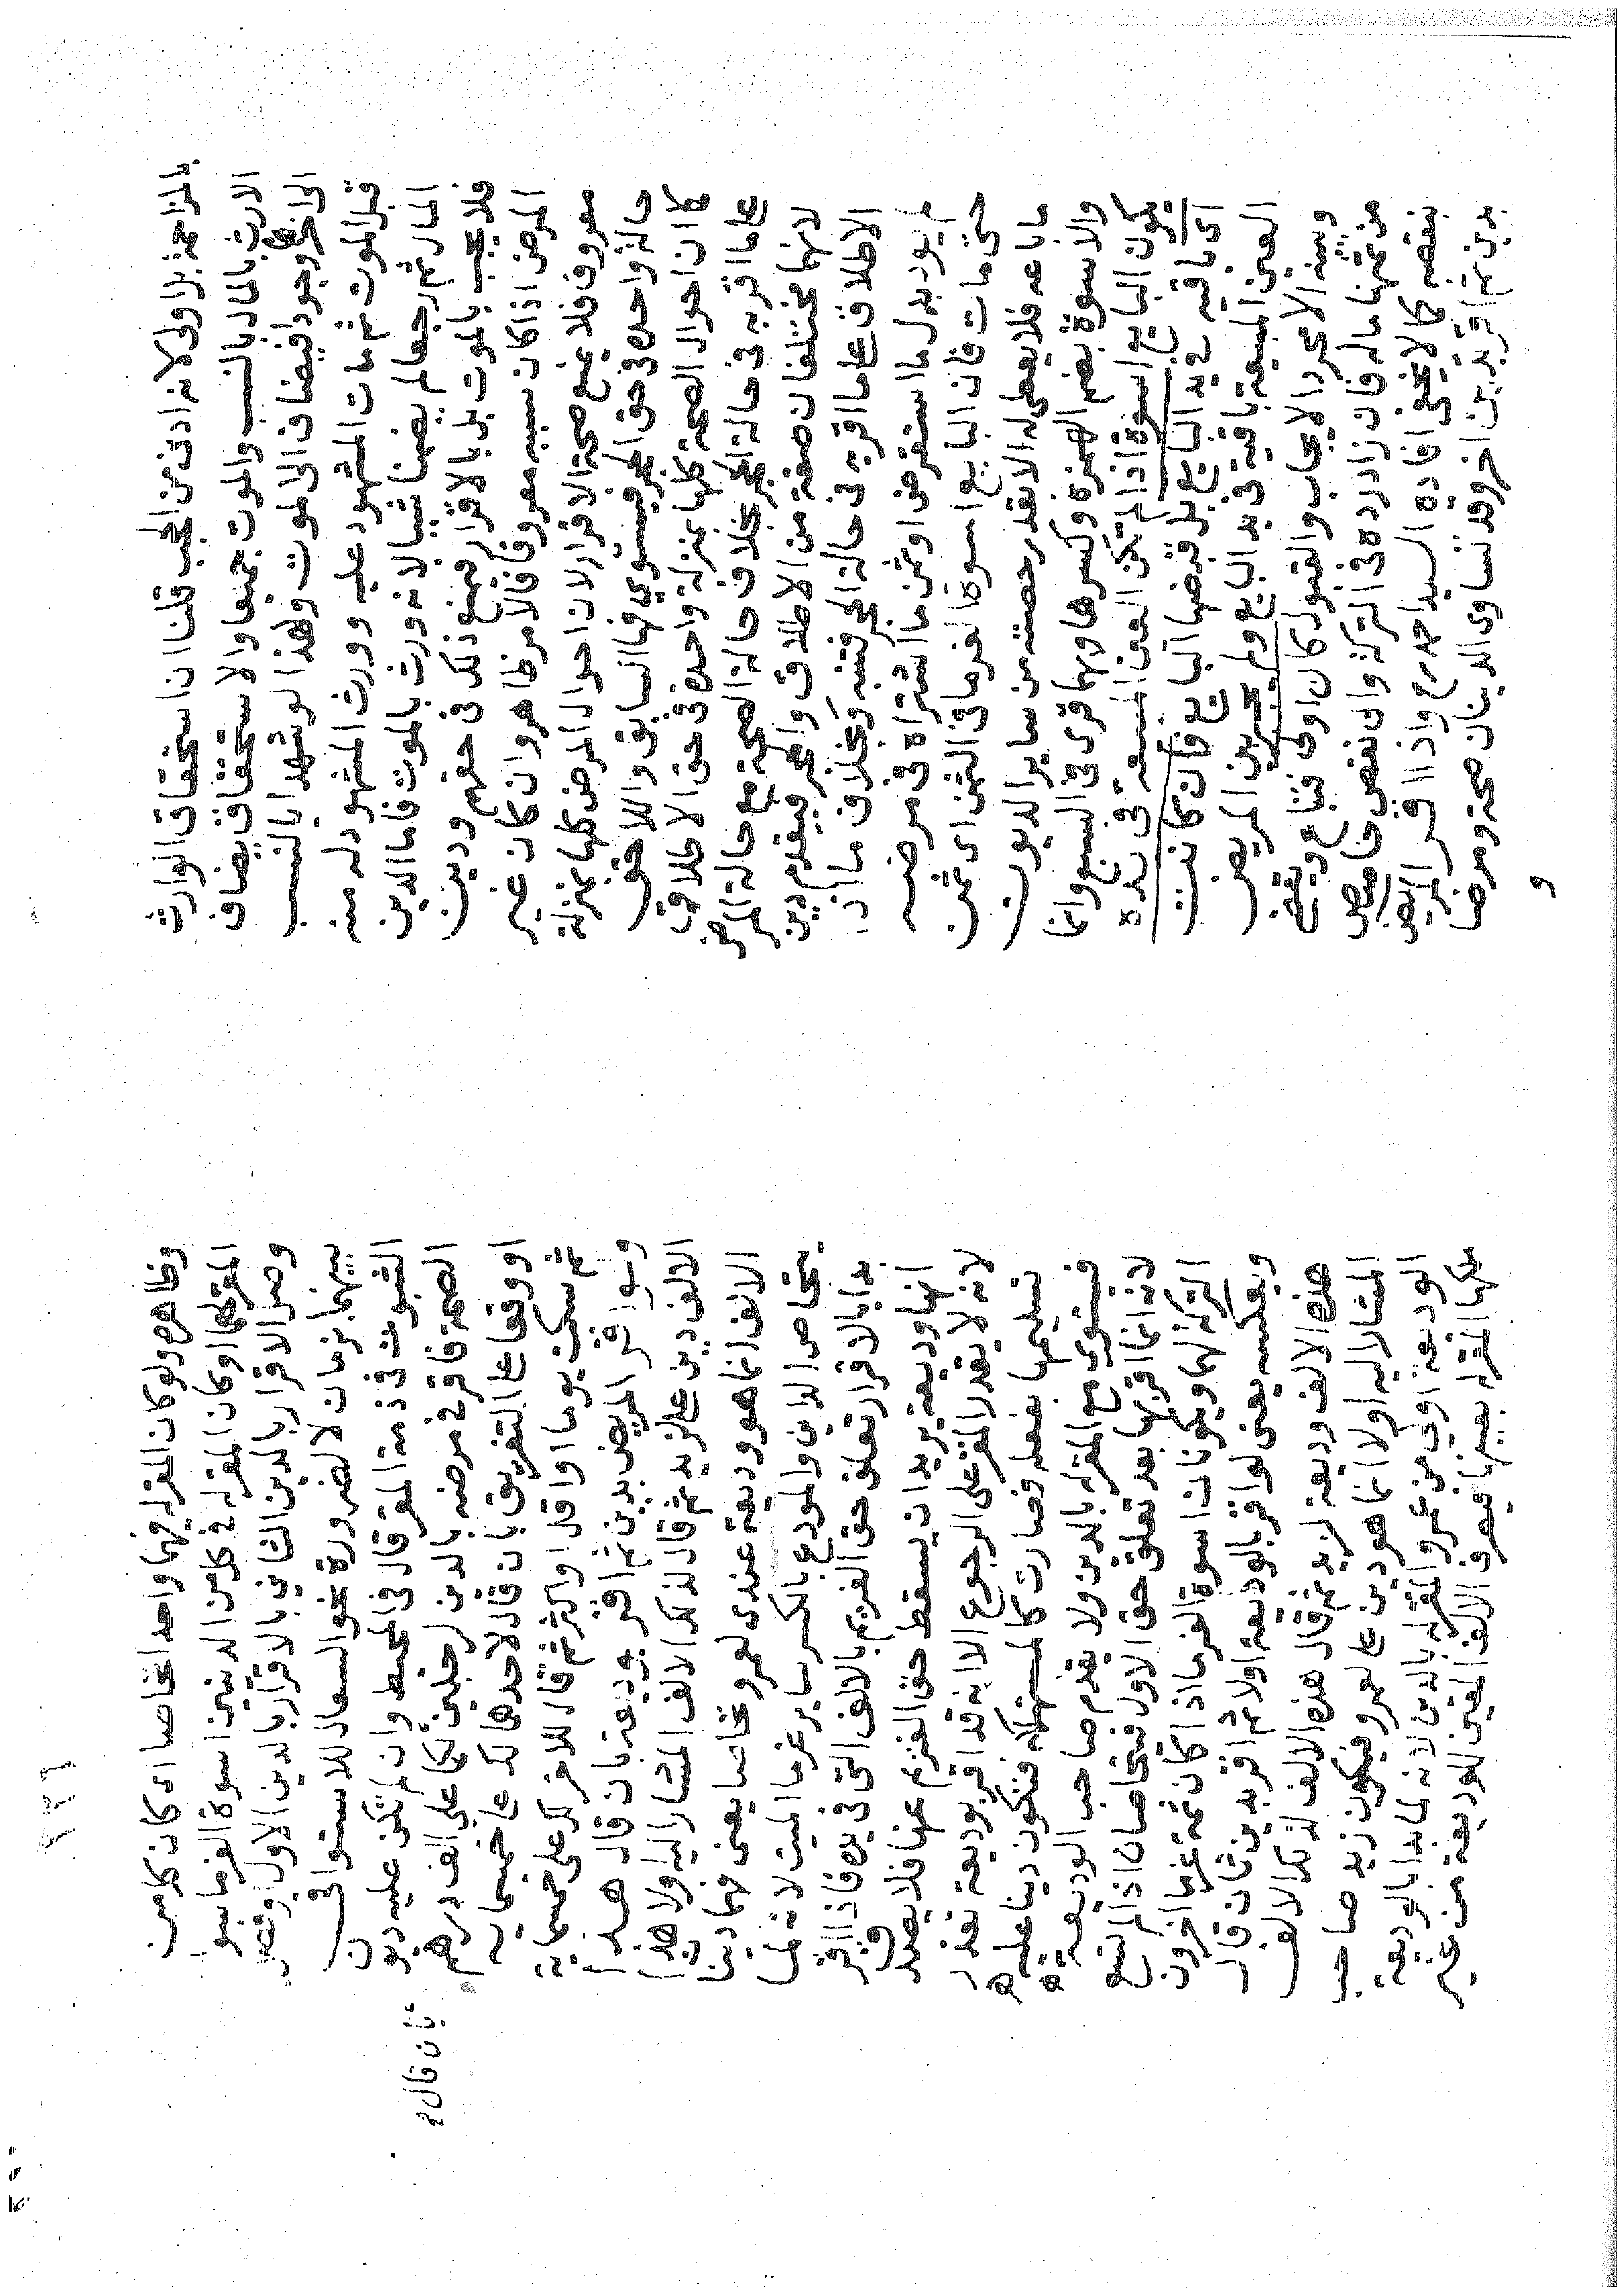 بالمزاحمة بلا ولى لانه ادنى من الحجب قلنا ان استحقاق الوارث
الارث بالمال بالنسب والموت جميعا والاستحقاق يضاف
الى اخرها وجودا فيضاف الى الموت ولهذا لو شهدا بالنسب
قبل الموت ثم مات المشهود عليه وورث المشهود له منه
المال ثم رجعا لم يضمنا شيئا لانه ورث بالموت فاما الدين
فلا يجب بالموت بل بالاقرار فيمنع ذلك في حقهم ودين
المرض اذا كان سببه معروفا فالامر ظاهر وان كان غير
معروف فلا يمنع صحة الاقرار لان احوال المرض كلها بمنزلة
حالة واحدة في حق الحجر فيستوي فيها السابق واللاحق
كما ان احوال الصحة كلها بمنزلة واحدة في حق الاطلاق
على ما اقر به في حالة الحجر بخلاف حالة الصحة مع حالة المرض
لانهما مختلفان صفة من الاطلاق والحجر فيقدم دين
الاطلاق على ما اقر به في حالة الحجر فتنبه وبخلاف ما اذا
لم يود بدل ما استقرض او ثمن ما اشتراه في مرضه
حتى مات فان البايع اسوة الغرما في الثمن اى ثمن
ما باعه فلا يعطى له الا بقدر حصته من ساير الديون
والاسوة بضم الهمزة وكسرها وبهما قرى في السبع وانما
يكون البايع اسوة اذا لم تكن العين المبيعة في يده
اى باقية في يد البايع بل قبضها البايع فان كانت
العين المبيعة باقية في يد البايع ولم يجر بين المريض
وبينه الا مجرد الايجاب والقبول كان اولى فتباع ويقضى
من ثمنها ماله فان زاد رده في التركة وان نقص حاصص
بنقصه كما لا يخفى افاده السيد احمد رح واذا اقر المريض
بدين ثم اقر بدين اخر وقد تساوى الدينان صحة ومرضا
و
٢٣٦
وظاهره ولو كان المقر له فيهما واحدا تحاصا اى كان كل من
المقر لهما او كان المقر له في كل من الدينين اسوة الغرما سوا
وصل الاقرار بالدين الثاني بالاقرار بالدين الاول او فصل
بينهما بزمان لا لضرورة نحو السعال للاستوا في
الثبوت في ذمة المقر قال في المحيط وان لم تكن عليه ديون
الصحة فاقر في مرضه بالدين لرجلين بان قال لكما على الف درهم
او وقعا على التفريق بان قال لاحدهما لك على خمسماية
ثم سكت يوما او اقل او اكثر ثم قال للاخر لك على خمسماية
وسوا اقر المريض بدين ثم اقر بوديعة بان قال هذا
الالف دين على لزيد ثم قال لذلك الالف المشار اليه اولا هذا
الالف انما هو وديعة عندى لعمرو تحاصا يعنى فهما دينا
يتحاص الداين والمودع بالكسر ساير غرما الميت لانه لما
بدا بالاقرار تعلق حق الغريم بالالف التى في يده فاذا اقر
انها وديعة يريد ان يسقط حق الغريم عنها فلا يصدق
لانه لا يقدر المقر على الرجوع الا انه قد اقر بوديعة تعذر
تسليمها بفعله فصارت كالمستهلكة فتكون دينا عليه
فيستوي مع المقر له بالدين ولا يقدم صاحب الوديعة
لانه انما اقر بها بعد تعلق حق الاول فتحاصان اذا لم تسع
التركة لهما ويكونان اسوة الغرما اذا كان ثمة غرما اخرون
وبعكسه يعنى لو اقر بالوديعة اولا ثم اقر بدين ثان قال
هذه الالف وديعة لزيد ثم قال هذه الالف لذلك الالف
المشار اليه اولا انما هو دين على لعمرو فيكون زيد صاحب
الوديعة اولى من عمرو المقر له بالدين لانه لما بدا بالوديعة
ملكها المقر له بعينها فيصرف الالف المعين للوديعة من غير
بان قال